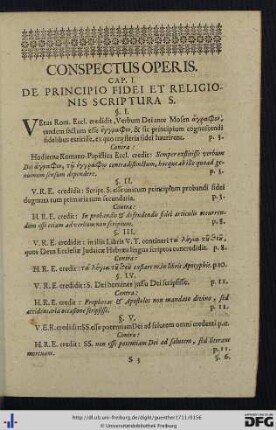 CONSPECTUS OPERIS.
CAP. I.
DE PRINCIPIO FIDEI ET RELIGIO-
NIS SCRIPTURA S.
§. I.
VEtus Rom. Eccl. credidit, Verbum Dei ante Mosen ἄγραφον,
tandem factum esse ἔγγραφον, & sic principium cognoscendi
fidelibus exstitisse, ex quo mysteria fidei haurirent. p. 1.
Contra:
Hodierna Romano-Papistica Eccl. credit: Semper exstitisse verbum
Dei ἄγραφον, τῷ ἐγγράφῳ contradistinctum, hocque ab illo quoad ge-
nuinum sensum dependere. p. 1.
§. II.
V. R. E. credidit: Script. S. esse unicum principium probandi fidei
dogmata tum primaria tum secundaria. p. 3.
Contra:
H. R. E. credit: In probandis & defendendis fidei articulis recurren-
dum esse etiam ad verbum non scriptum. p. 3.
§. III.
V. R. E. credidit: in illis Libris V. T. contineri τὰ λόγια τῦ Θεῦ,
quos Deus Ecclesiæ Judaicæ Hebræo lingua scriptos concredidit. p. 8.
Contra:
H. R. E. credit: τὰ λόγια τῦ Θεῦ exstare in libris Apocryphis. p. 10.
§. IV.
V. R. E. credidit: S. Dei homines jussu Dei scripsisse. p. 11.
Contra:
H. R. E. credit: Prophetas & Apostolos non mandato divino, sed
accidentaria occasione scripsisse. p. 11.
§. V.
V. E. R. credidit: SS. esse potentiam Dei ad salutem omni credenti p. 12.
Contra:
H. R. E. credit: SS. non esse potentiam Dei ad salutem, sed literam
mortuam. p. 12.
S 3 §. 6.
http://dl.ub.uni-freiburg.de/diglit/guenther1711/0156
© Universitätsbibliothek Freiburg
gefördert durch die
DFG